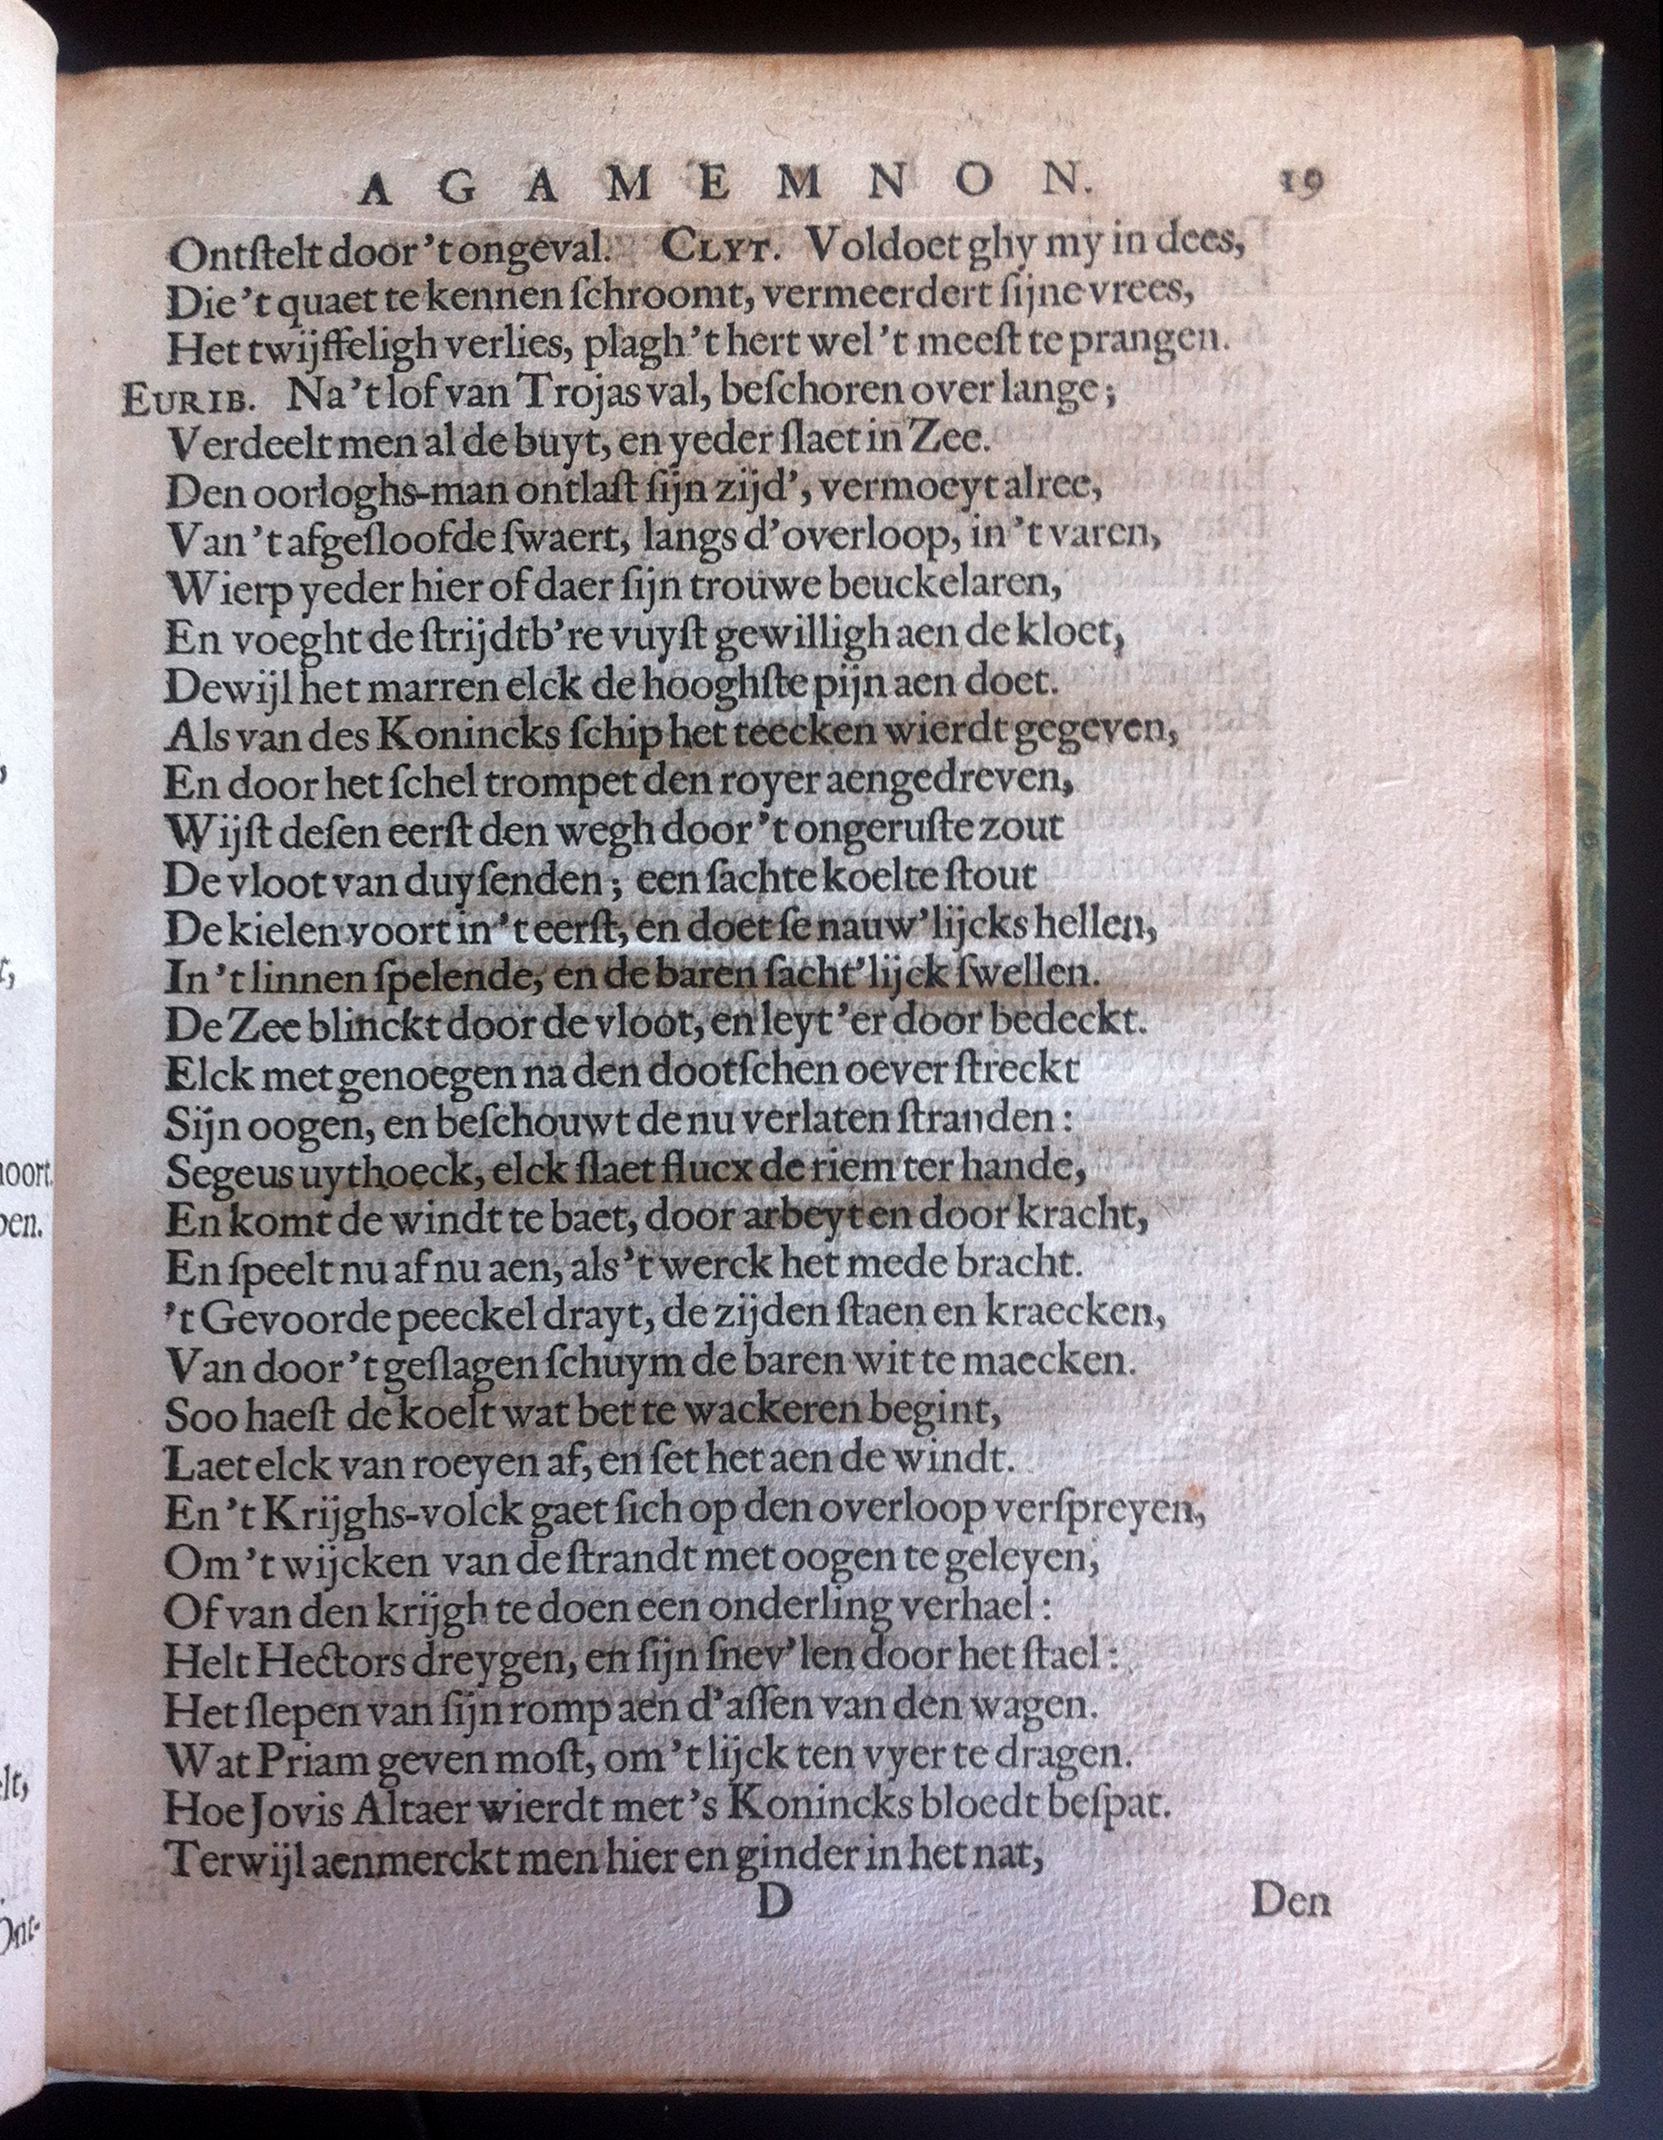 AGAMEMNON. 19
Ontſtelt door 't ongeval. CLYT. Voldoet ghy my in dees,
Die 't quaet te kennen ſchroomt, vermeerdert ſijne vrees,
Het twijffeligh verlies, plagh 't hert wel 't meeſt te prangen.
EURIB. Na 't lof van Trojas val, beſchoren over lange;
Verdeelt men al de buyt, en yeder ſlaet in Zee.
Den oorloghs-man ontlaſt ſijn zijd', vermoeyt alree,
Van 't afgeſloofde ſwaert, langs d'overloop, in 't varen,
Wierp yeder hier of daer ſijn trouwe beuckelaren,
En voeght de ſtrijdtb're vuyſt gewilligh aen de kloet,
Dewijl het marren elck de hooghſte pijn aen doet.
Als van des Konincks ſchip het teecken wierdt gegeven,
En door het ſchel trompet den royer aengedreven,
Wijſt deſen eerſt den wegh door 't ongeruſte zout
De vloot van duyſenden; een ſachte koelte ſtout
De kielen voort in 't eerſt, en doet ſe nauw'lijcks hellen,
In 't linnen ſpelende, en de baren ſacht'lijck ſwellen.
De Zee blinckt door de vloot, en leyt 'er door bedeckt.
Elck met genoegen na den dootſchen oever ſtreckt
Sijn oogen, en beſchouwt de nu verlaten ſtranden:
Segeus uythoeck, elck ſlaet flucx de riem ter hande,
En komt de windt te baet, door arbeyt en door kracht,
En ſpeelt nu af nu aen, als 't werck het mede bracht.
't Gevoorde peeckel drayt, de zijden ſtaen en kraecken,
Van door 't geſlagen ſchuym de baren wit te maecken.
Soo haeſt de koelt wat bet te wackeren begint,
Laet elck van roeyen af, en ſet het aen de windt.
En 't Krijghs-volck gaet ſich op den overloop verſpreyen,
Om 't wijcken van de ſtrandt met oogen te geleyen,
Of van den krijgh te doen een onderling verhael:
Helt Hectors dreygen, en ſijn ſnev'len door het ſtael:
Het ſlepen van ſijn romp aen d'aſſen van den wagen.
Wat Priam geven moſt, om 't lijck ten vyer te dragen.
Hoe Jovis Altaer wierdt met 's Konincks bloedt beſpat.
Terwijl aenmerckt men hier en ginder in het nat,
D Den